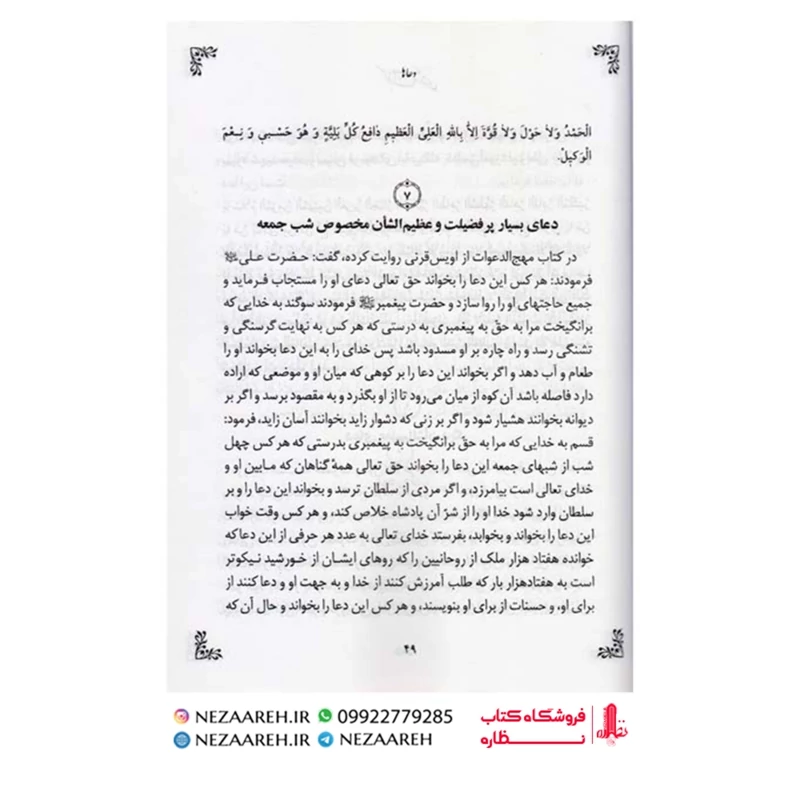 دعاها
الْحَمْدُ وَلاٰ حَوْلَ وَلاٰ قُوَّةَ اِلاّٰ بِاللهِ الْعَلِیِّ الْعَظیمِ دٰافِعُ کُلِّ بَلِیَّةٍ وَ هُوَ حَسْبی وَ نِعْمَ
الْوَکیلْ.
۷
دعای بسیار پرفضیلت و عظیم‌الشأن مخصوص شب جمعه
در کتاب مهج‌الدعوات از اویس‌قرنی روایت کرده، گفت: حضرت علی
فرمودند: هر کس این دعا را بخواند حق تعالی دعای او را مستجاب فرماید و
جمیع حاجتهای او را روا سازد و حضرت پیغمبرﷺ فرمودند سوگند به خدایی که
برانگیخت مرا به حقّ به پیغمبری به درستی که هر کس به نهایت گرسنگی و
تشنگی رسد و راه چاره بر او مسدود باشد پس خدای را به این دعا بخواند او را
طعام و آب دهد و اگر بخواند این دعا را بر کوهی که میان او و موضعی که اراده
دارد فاصله باشد آن کوه از میان می‌رود تا از او بگذرد و به مقصود برسد و اگر بر
دیوانه بخوانند هشیار شود و اگر بر زنی که دشوار زاید بخوانند آسان زاید، فرمود:
قسم به خدایی که مرا به حقّ برانگیخت به پیغمبری بدرستی که هر کس چهل
شب از شبهای جمعه این دعا را بخواند حق تعالی همهٔ گناهان که مابین او و
خدای تعالی است بیامرزد، و اگر مردی از سلطان ترسد و بخواند این دعا را و بر
سلطان وارد شود خدا او را از شرّ آن پادشاه خلاص کند، و هر کس وقت خواب
این دعا را بخواند و بخوابد، بفرستد خدای تعالی به عدد هر حرفی از این دعا که
خوانده هفتاد هزار ملک از روحانیین را که روهای ایشان از خورشید نیکوتر
است به هفتادهزار بار که طلب آمرزش کنند از خدا و به جهت او و دعا کنند از
برای او، و حسنات از برای او بنویسند، و هر کس این دعا را بخواند و حال آن که
۴۹
NEZAAREH.IR 09922779285
NEZAAREH.IR NEZAAREH
فروشگاه کتاب
نظاره